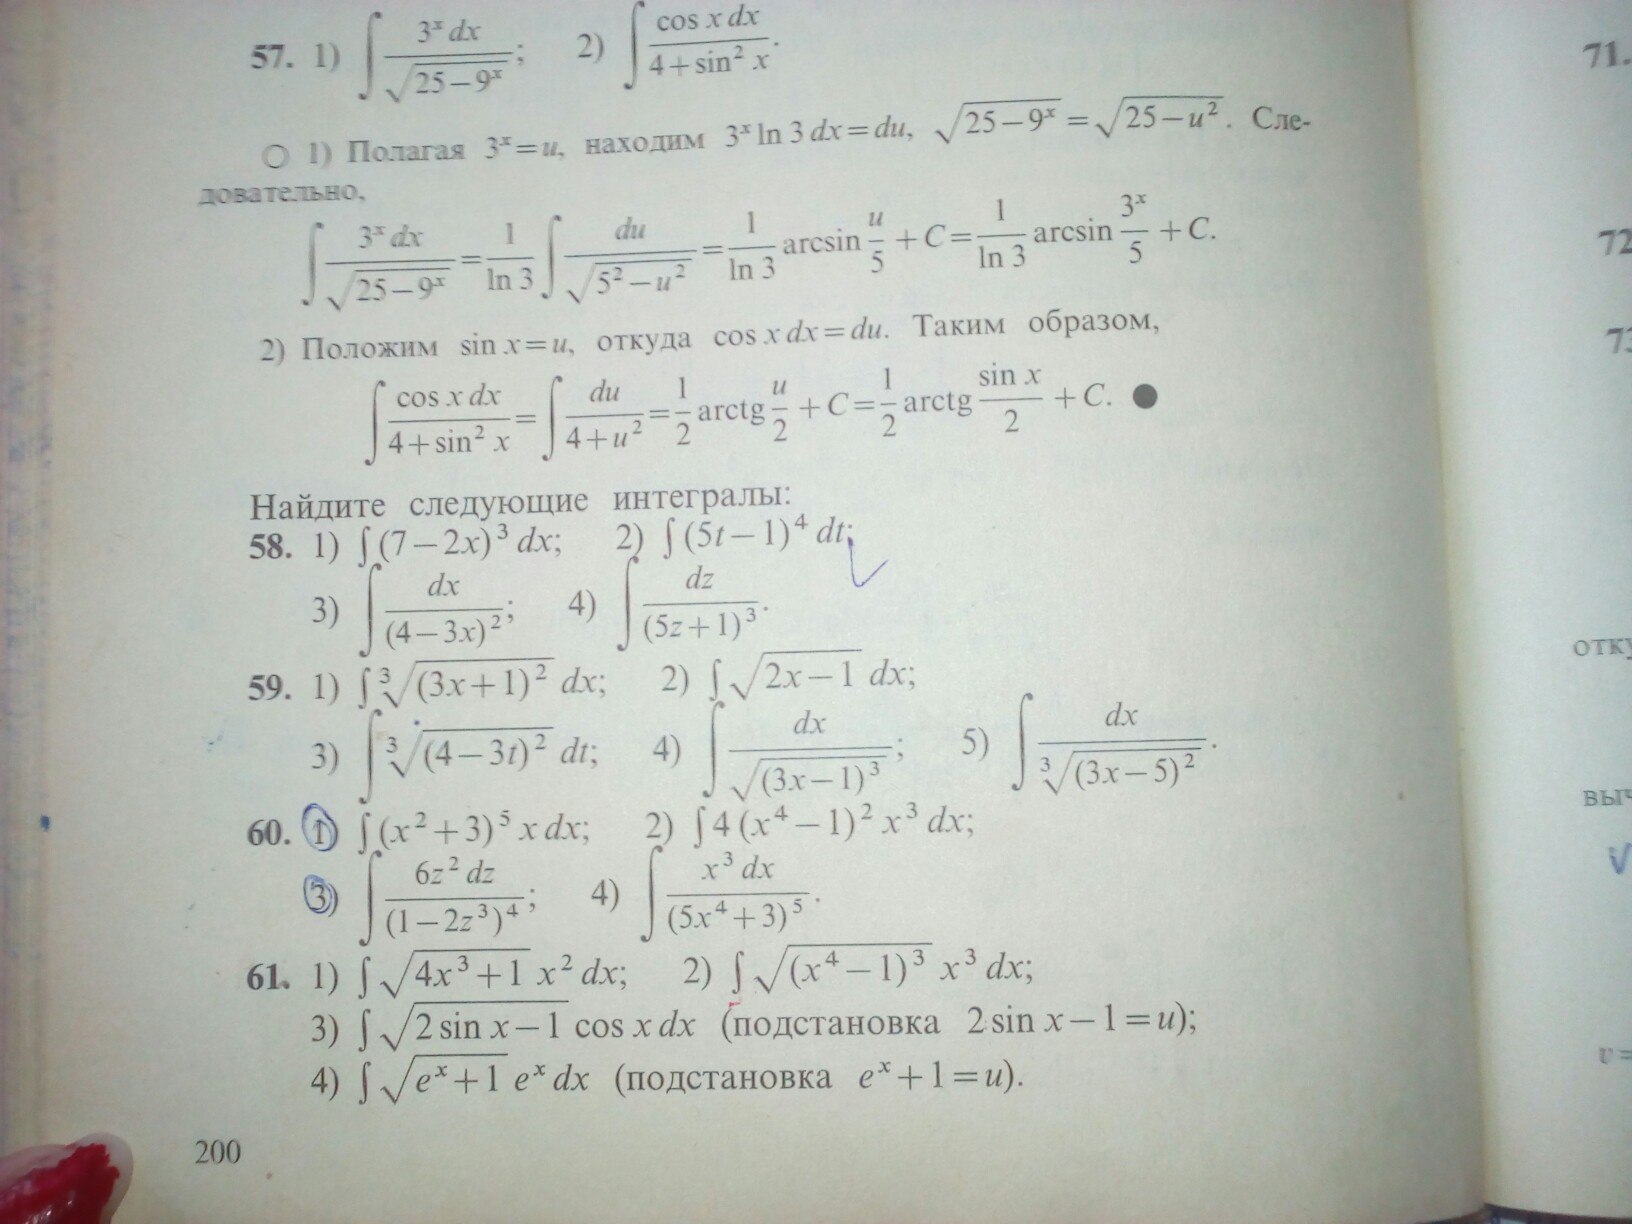 57. 1) ∫ 3ˣ dx / √(25−9ˣ); 2) ∫ cos x dx / (4+sin² x).
○ 1) Полагая 3ˣ=u, находим 3ˣ ln 3 dx=du, √(25−9ˣ)=√(25−u²). Сле-
довательно,
∫ 3ˣ dx / √(25−9ˣ) = 1/ln 3 ∫ du / √(5²−u²) = 1/ln 3 arcsin u/5 + C = 1/ln 3 arcsin 3ˣ/5 + C.
2) Положим sin x=u, откуда cos x dx=du. Таким образом,
∫ cos x dx / (4+sin² x) = ∫ du / (4+u²) = 1/2 arctg u/2 + C = 1/2 arctg sin x/2 + C. ●
Найдите следующие интегралы:
58. 1) ∫(7−2x)³ dx; 2) ∫(5t−1)⁴ dt;
3) ∫ dx / (4−3x)²; 4) ∫ dz / (5z+1)³.
59. 1) ∫∛((3x+1)²) dx; 2) ∫√(2x−1) dx;
3) ∫ ∛((4−3t)²) dt; 4) ∫ dx / √((3x−1)³); 5) ∫ dx / ∛((3x−5)²).
60. 1) ∫(x²+3)⁵ x dx; 2) ∫4(x⁴−1)² x³ dx;
3) ∫ 6z² dz / (1−2z³)⁴; 4) ∫ x³ dx / (5x⁴+3)⁵.
61. 1) ∫√(4x³+1) x² dx; 2) ∫√((x⁴−1)³) x³ dx;
3) ∫√(2 sin x−1) cos x dx (подстановка 2 sin x−1=u);
4) ∫√(eˣ+1) eˣ dx (подстановка eˣ+1=u).
200
71.
72
73
отку
выч
v=